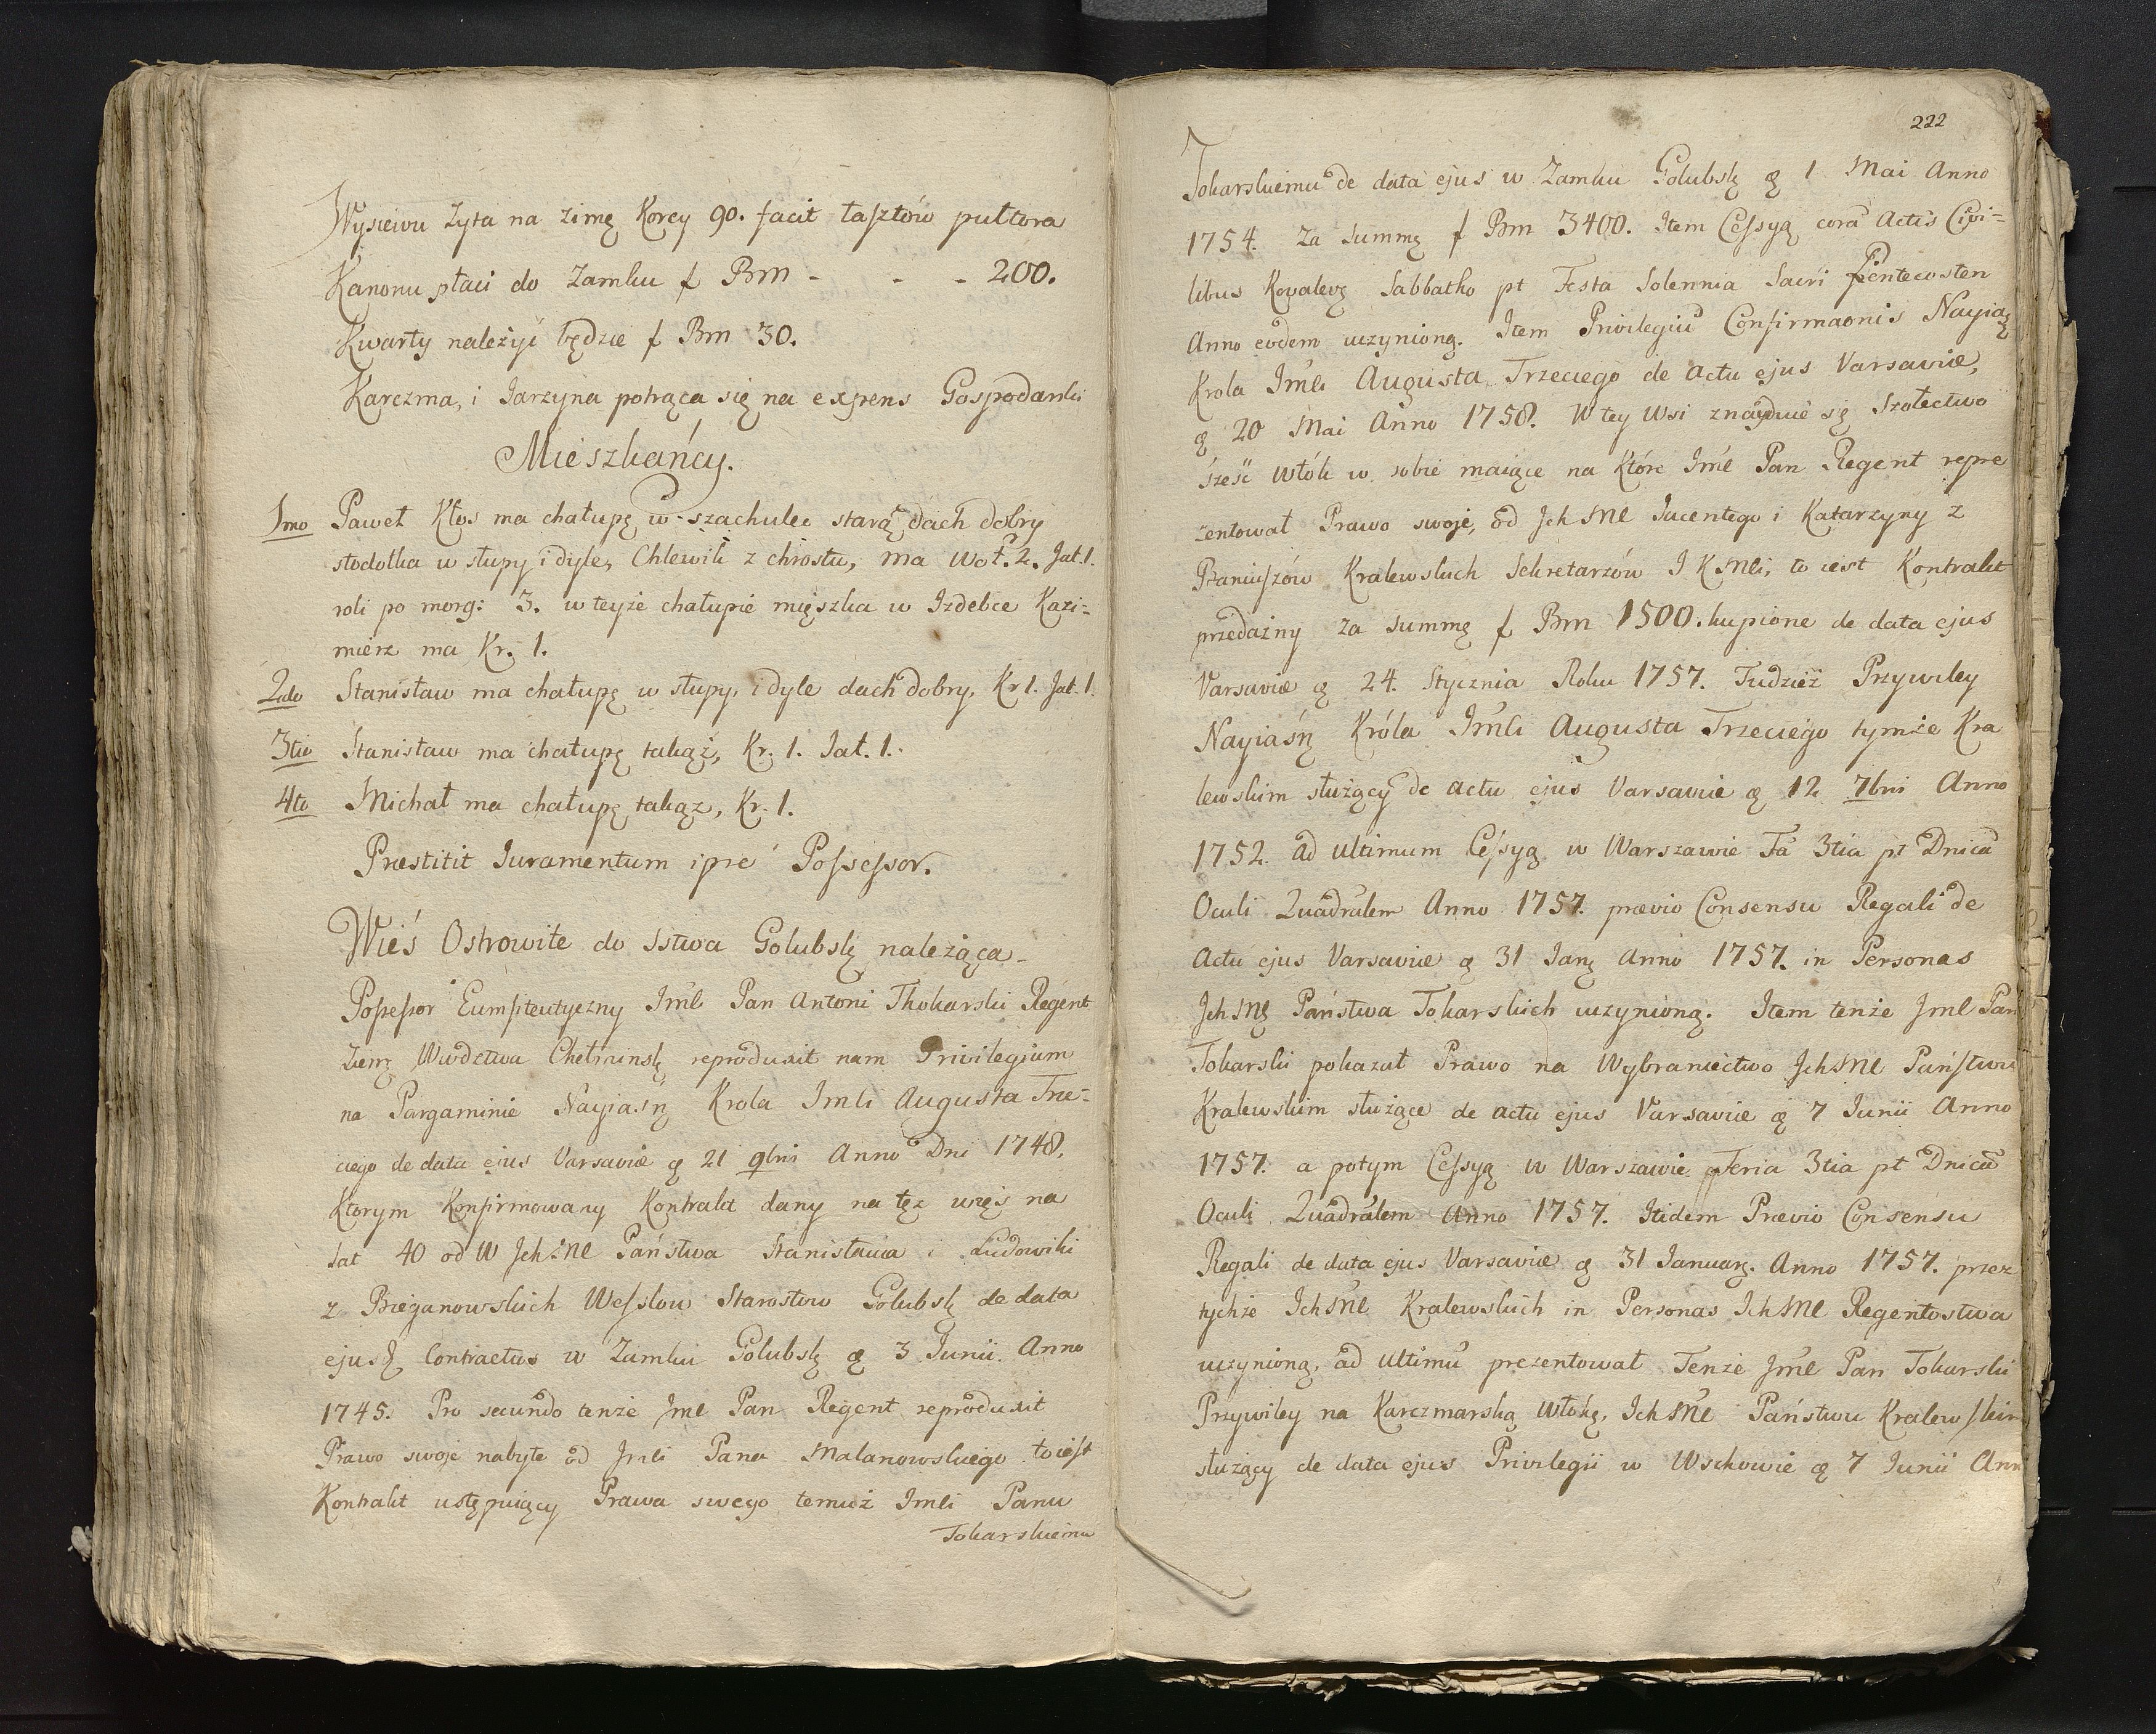 Wysiewu Zyta na zimę Korcy 90. facit łasztów pułtora
Kanonu płaci do Zamku f Prn - - - 200.
Kwarty należyć będzie f Prn 30.
Karczma, i Jarzyna potrąca się na expens Gospodarski
Mieszkańcy.
1mo Paweł Kłos ma chałupę w szachulec starą dach dobry
stodołka w słupy i dyle, Chlewik z chrostu, ma Woł. 2. Jał. 1.
roli po morg: 3. w teyże chałupie mięszka w Izdebce Kazi-
mierz ma Kr. 1.
2do Stanisław ma chałupę w słupy, i dyle dach dobry, Kr 1. Jał. 1.
3tio Stanisław ma chałupę takąż, Kr. 1. Jał. 1.
4to Michał ma chałupę takąz, Kr. 1.
Præstitit Juramentum ipse Possessor.
Wieś Ostrowite do Sstwa Golubsk należąca
Possessor Eumfiteutyczny Jmć Pan Antoni Thokarski Regent
Ziem Wwdztwa Chełmińsk reproduxit nam Privilegium
na Pargaminie Nayiaśn Krola Jmci Augusta Trze-
ciego de data ejus Varsaviæ d 21 9bris Anno Dni 1748.
Ktorym Konfirmowany Kontrakt dany na tęz wieś na
Lat 40 od W JchMć Państwa Stanisława i Ludowiki
z Bieganowskich Wesslow Starostow Golubsk de data
ejusd Contractus w Zamku Golubsk d 3 Junii Anno
1745. Pro secundo tenże Jmć Pan Regent reproduxit
Prawo swoje nabyte od Jmci Pana Malanowskiego to iest
Kontrakt ustępuiący Prawa swego temuż Jmci Panu
Tokarskiemu
222
Tokarskiemu de data ejus w Zamku Golubsk d 1 Mai Anno
1754. Za summę f Prn 3400. Item Cessyą corā Actis Civi-
libus Kovalev Sabbatho pt Festa Solennia Sacri Pentecosten
Anno eodem uczynioną. Item Privilegiū Confirmaōnis Nayiaś
Krola Jmći Augusta Trzeciego de actu ejus Varsaviæ,
d 20 Mai Anno 1758. W tey Wsi znayduie się Szołectwo
sześć włók w sobie maiące na które Jmć Pan Regent repre
zentował Prawo swoje, od JchMć Jacentego i Katarzyny z
Kralewskich Sekretarzów J K Mći, to iest Kontrakt
przedażny za summę f Prn 1500. kupione de data ejus
Varsaviæ d 24. Stycznia Roku 1757. Tudzież Przywiley
Nayiaśn Króla Jmći Augusta Trzeciego tymże Kra
lewskim służący de actu ejus Varsaviæ d 12 7bris Anno
1752. ad ultimum Cessyą w Warszawie Fā 3tia pt Dnicā
Oculi Quadrālem Anno 1757. prævio Consensu Regali de
Actu ejus Varsaviæ d 31 Jan Anno 1757. in Personas
JchMć Państwa Tokarskich uczynioną. Item tenże Jmć Pan
Tokarski pokazał Prawo na Wybraniectwo JchMć Państwu
Kralewskim służące de actu ejus Varsaviæ d 7 Junii Anno
1757. a potym Cessyą w Warszawie Feria 3tia pt Dnicā
Oculi Quadrālem Anno 1757. Itidem Prævio Consensu
Regali de data ejus Varsaviæ d 31 Januar. Anno 1757. przez
tychże JchMć Kralewskich in Personas JchMć Regentostwa
uczynioną, ad ultimū prezentował Tenże Jmć Pan Tokarski
Przywiley na Karczmarską Włokę, JchMć Państwu Kralewskim
służący de data ejus Privilegii w Wschowie d 7 Junii Ann